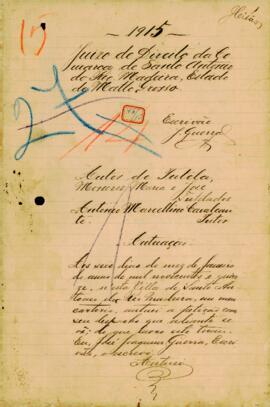 — 1915 —
15
Juizo de Direito da Co-
marca de Santo Antonio
do Rio Madeira, Estado
de Matto-Grosso
Escrivão
J. Guerra
Autos de Tutela,
Menores Maria e José
Tutelados
Antonio Marcellino Cavalcan-
te. Tutor
Autuação
dias do mez de
do anno de mil novecentos e quin-
ze, n'esta Villa de Santo An-
tonio do Rio Madeira, em meu
cartorio, autuei a petição com
seu despacho que adiante se
vê; do que lavro este termo.
Eu, José Joaquim Guerra, Escri-
vão, o escrevi.